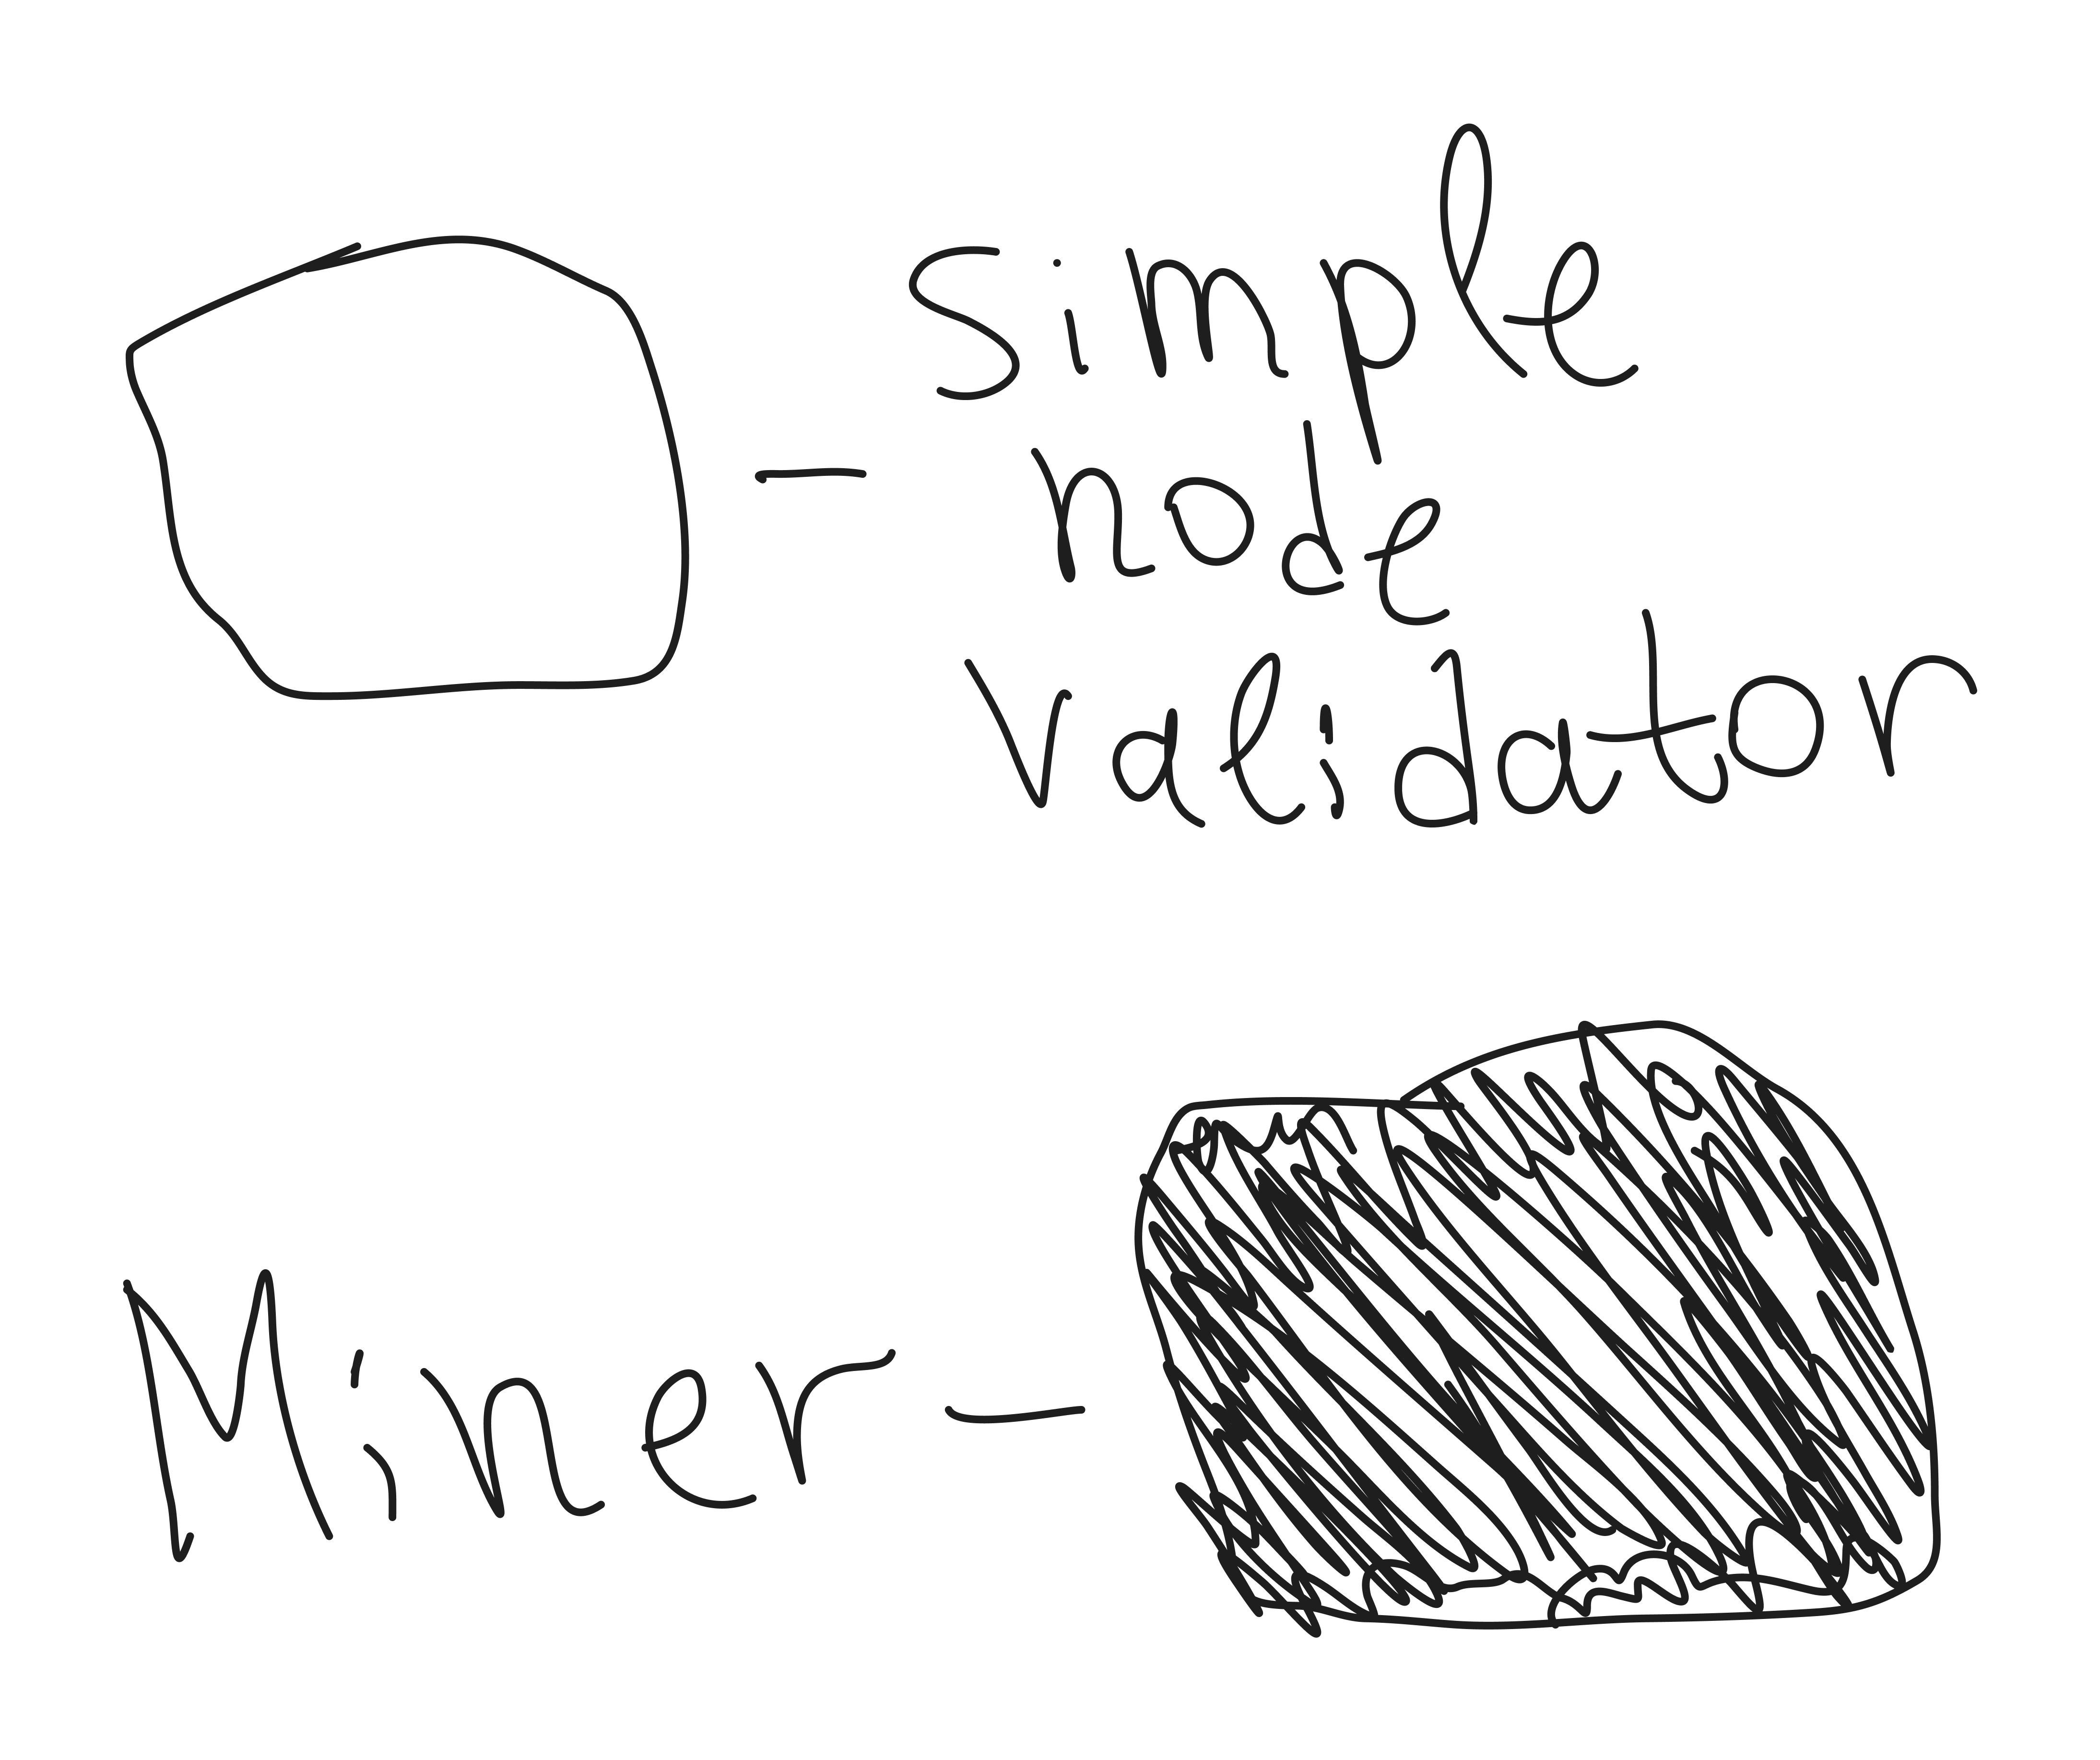 simple
node
validator
Miner -